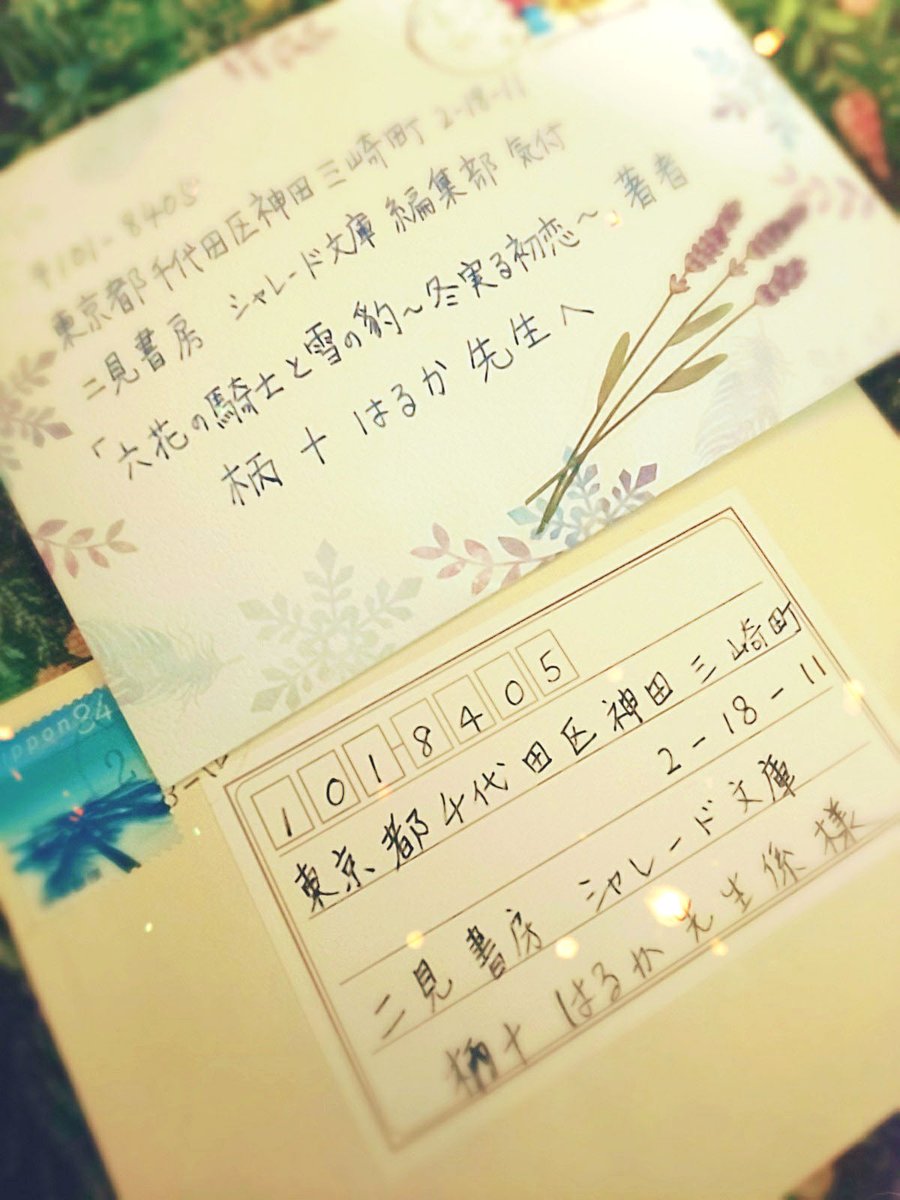 〒101-8405
東京都千代田区神田三崎町 2-18-11
二見書房 シャレード文庫 編集部 気付
「六花の騎士と雪の豹〜冬実る初恋〜」著者
柄十はるか先生へ
nippon 84
1018405
東京都千代田区神田三崎町
2-18-11
二見書房 シャレード文庫
柄十はるか先生係様